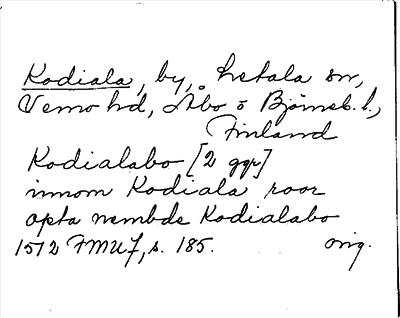 Kodiala, by, Letala sn,
Vemo hd, Åbo o Björneb. l.,
Finland
Kodialabo [2 ggr]
innom Kodiala roor
opta nembde Kodialabo
1512 FMU 7, s. 185. orig.